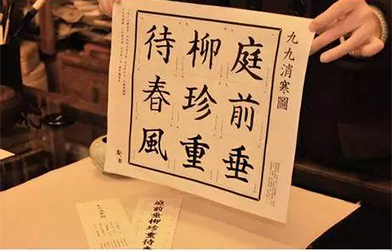 九九消寒圖
庭前垂
柳珍重
待春風
庭前垂柳珍重待春